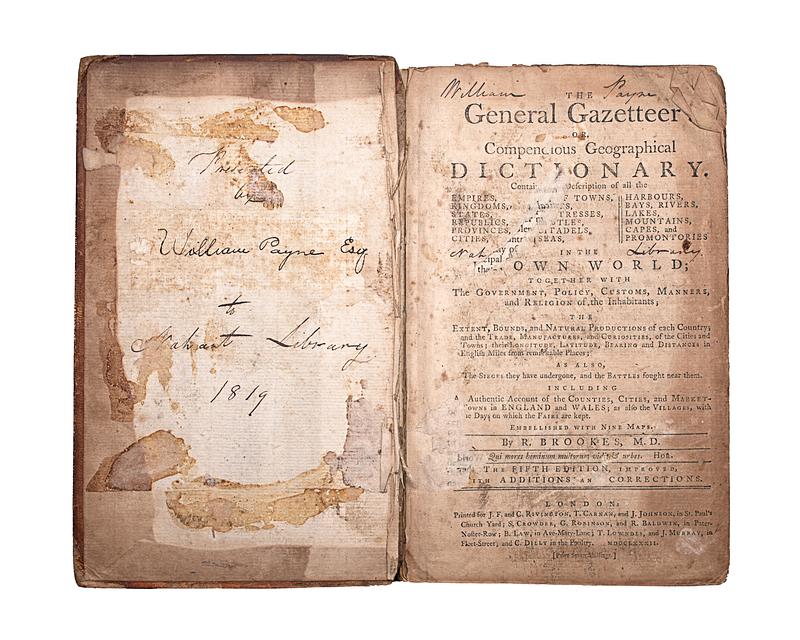 Presented
by
William Payne Esq
to
Nahant Library
1819
William Payne
THE
General Gazetteer
OR,
Compendious Geographical
DICTIONARY.
Description of all the
EMPIRES,
KINGDOMS,
STATES,
REPUBLICS,
PROVINCES,
CITIES,
OF TOWNS,
TRESSES,
TLES,
CITADELS,
SEAS,
HARBOURS,
BAYS, RIVERS,
LAKES,
MOUNTAINS,
CAPES, and
PROMONTORIES
IN THE
Nahant Library
OWN WORLD;
TOGETHER WITH
The GOVERNMENT, POLICY, CUSTOMS, MANNERS,
and RELIGION of the Inhabitants;
THE
EXTENT, BOUNDS, and NATURAL PRODUCTIONS of each Country;
and the TRADE, MANUFACTURES, and CURIOSITIES, of the Cities and
Towns; their LONGITUDE, LATITUDE, BEARING and DISTANCES in
English Miles from remarkable Places;
AS ALSO,
The SIEGES they have undergone, and the BATTLES fought near them.
INCLUDING
Authentic Account of the COUNTIES, CITIES, and MARKET-
TOWNS in ENGLAND and WALES; as also the VILLAGES, with
the Days on which the FAIRS are kept.
EMBELLISHED WITH NINE MAPS.
By R. BROOKES, M.D.
Qui mores hominum multorum vidit & urbes. HOR.
THE FIFTH EDITION, IMPROVED,
WITH ADDITIONS AND CORRECTIONS.
LONDON:
Printed for J. F. and C. RIVINGTON, T. CARNAN, and J. JOHNSON, in St. Paul's
Church Yard; S. CROWDER, G. ROBINSON, and R. BALDWIN, in Pater-
Noster-Row; B. LAW, in Ave-Mary-Lane; T. LOWNDES, and J. MURRAY, in
Fleet-Street; and C. DILLY in the Poultry. MDCCLXXXII.